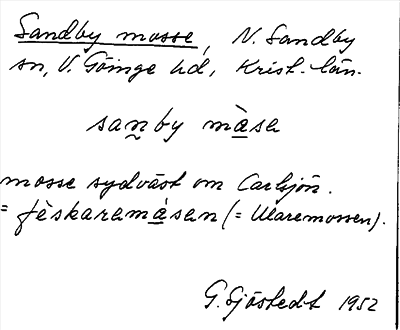 Sandby mosse, N. Sandby
sn, V. Göinge hd, Krist. län.
san̰by màsa
mosse sydväst om Carlsjön.
= fèskaremásen (= Ularemossen).
G. Sjöstedt 1952